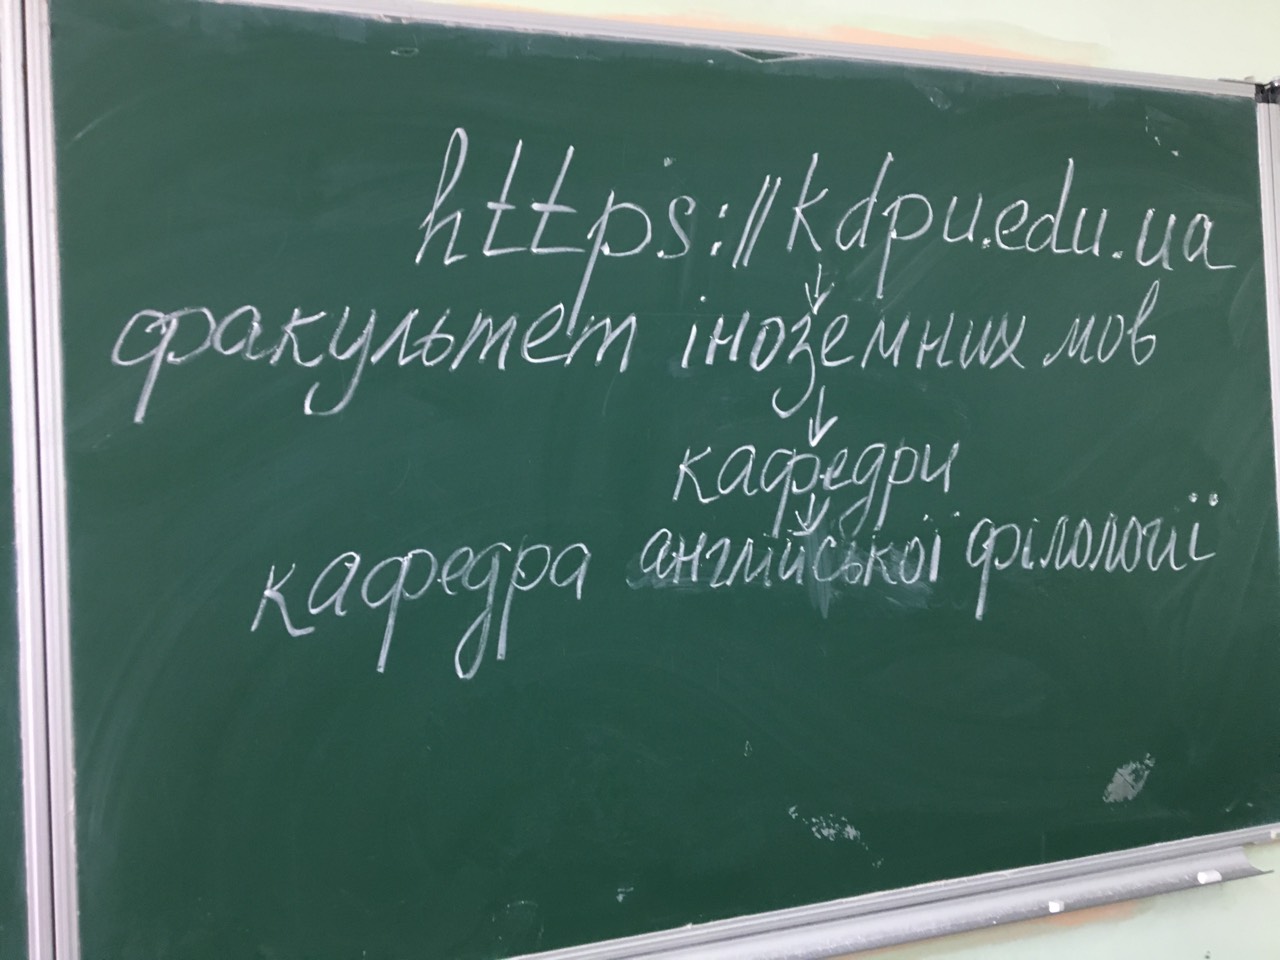 https://kdpu.edu.ua
↓
факультет іноземних мов
↓
кафедри
↓
кафедра англійської філології